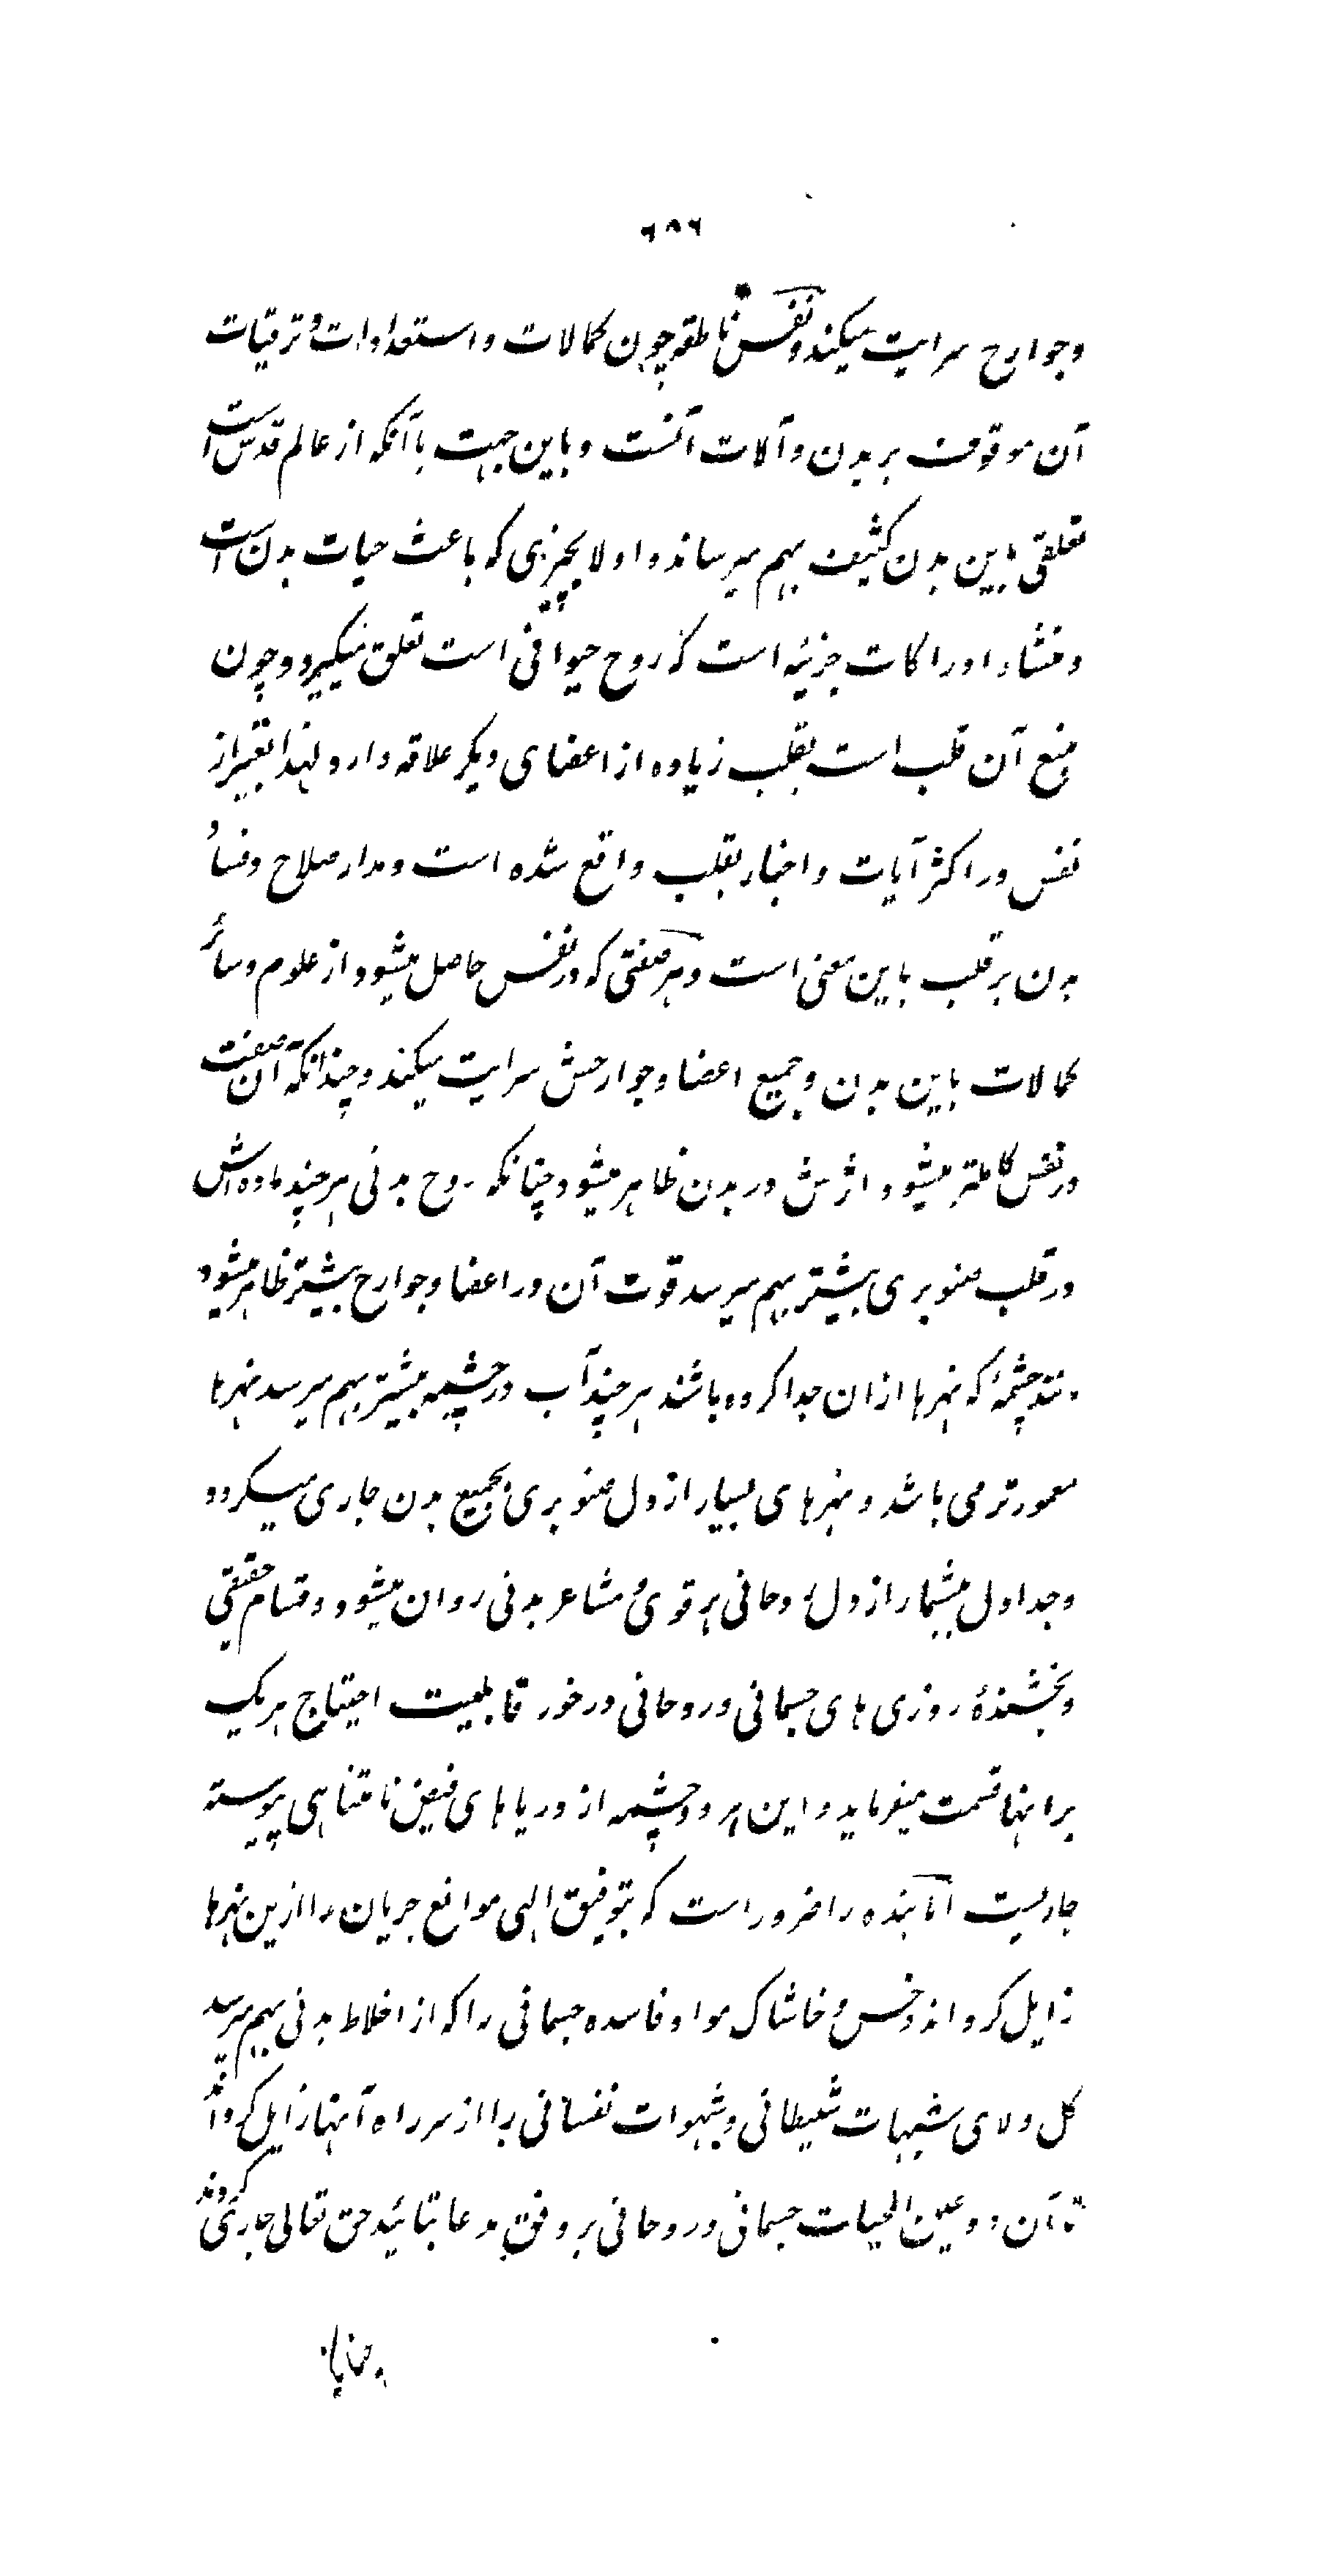 ٦٨٦
وجوارح سرایت میکند و نفس ناطقه چون کمالات و استعدادات و ترقیات
آن موقوف بر بدن و آلات آنست و باین جهت باآنکه از عالم قدس است
تعلقی باین بدن کثیف بهم میرساند و اولا بچیزی که باعث حیات بدن است
و منشاء ادراکات جزئیه است که روح حیوانی است تعلق میگیرد و چون
منبع آن قلب است بقلب زیاده از اعضای دیگر علاقه دارد لهذا تعبیر از
نفس در اکثر آیات و اخبار بقلب واقع شده است و مدار صلاح و فساد
بدن بر قلب باین معنی است و هر صفتی که در نفس حاصل میشود از علوم و سائر
کمالات باین بدن و جمیع اعضا و جوارحش سرایت میکند و چندانکه آن صفت
در نفس کاملتر میشود اثرش در بدن ظاهر میشود چنانکه روح بدنی هر چند ماده اش
در قلب صنوبری بیشتر بهم میرسد قوت آن در اعضا و جوارح بیشتر ظاهر میشود
مانند چشمهٔ که نهرها ازان جدا کرده باشند هر چند آب در چشمه بیشتر بهم میرسد نهرها
معمورتر می باشد و نهرهای بسیار از دل صنوبری بجمیع بدن جاری میگردد
و جداول بیشمار از دل روحانی بر قوی و مشاعر بدنی روان میشود و قسام حقیقی
و بخشندهٔ روزی های جسمانی و روحانی در خور قابلیت احتیاج هر یک
براینها قسمت میفرماید و این هر دو چشمه از دریاهای فیض نامتناهی پیوسته
جاریست اما بنده را ضرور است که بتوفیق الهی موانع جریان را ازین نهرها
زایل گرداند و خس و خاشاک مواد فاسده جسمانی را که از اخلاط بدنی بهم میرسد
گل و لای شبهات شیطانی و شهوات نفسانی را از سر راه آنها زایل گرداند
تا آن دو عین الحیات جسمانی و روحانی بر وفق مدعا بتائید حق تعالی جاری گردند
چنانچه